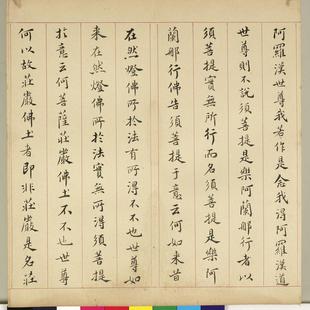 阿羅漢世尊我若作是念我得阿羅漢道
世尊則不說須菩提是樂阿蘭那行者以
須菩提實無所行而名須菩提是樂阿
蘭那行佛告須菩提于意云何如來昔
在然燈佛所於法有所得不不也世尊如
來在然燈佛所於法實無所得須菩提
於意云何菩薩莊嚴佛土不不也世尊
何以故莊嚴佛土者即非莊嚴是名莊